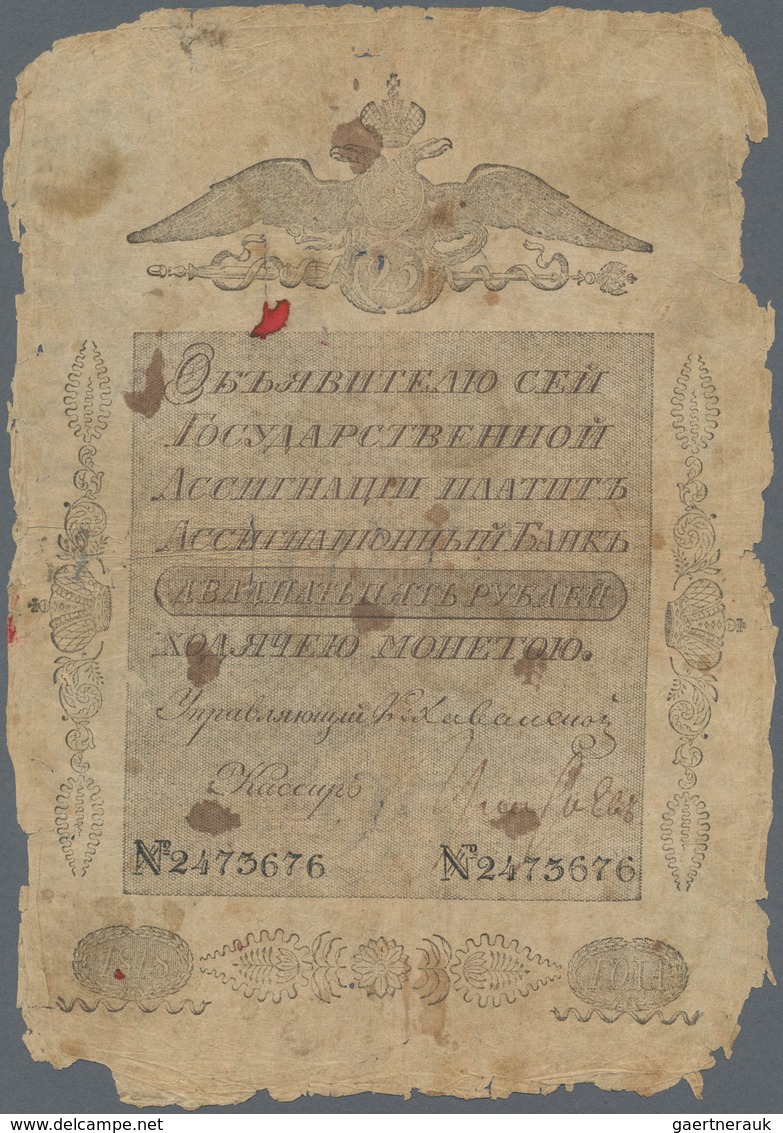 25
Объявителю сей
Государственной
Ассигнаціи платитъ
Ассигнаціонный Банкъ
двадцать пять рублей
ходячею монетою.
Управляющій К. Хованской
Кассиръ
№2473676 №2473676
1818 ГОДА
delcampe.net gaertnerauk